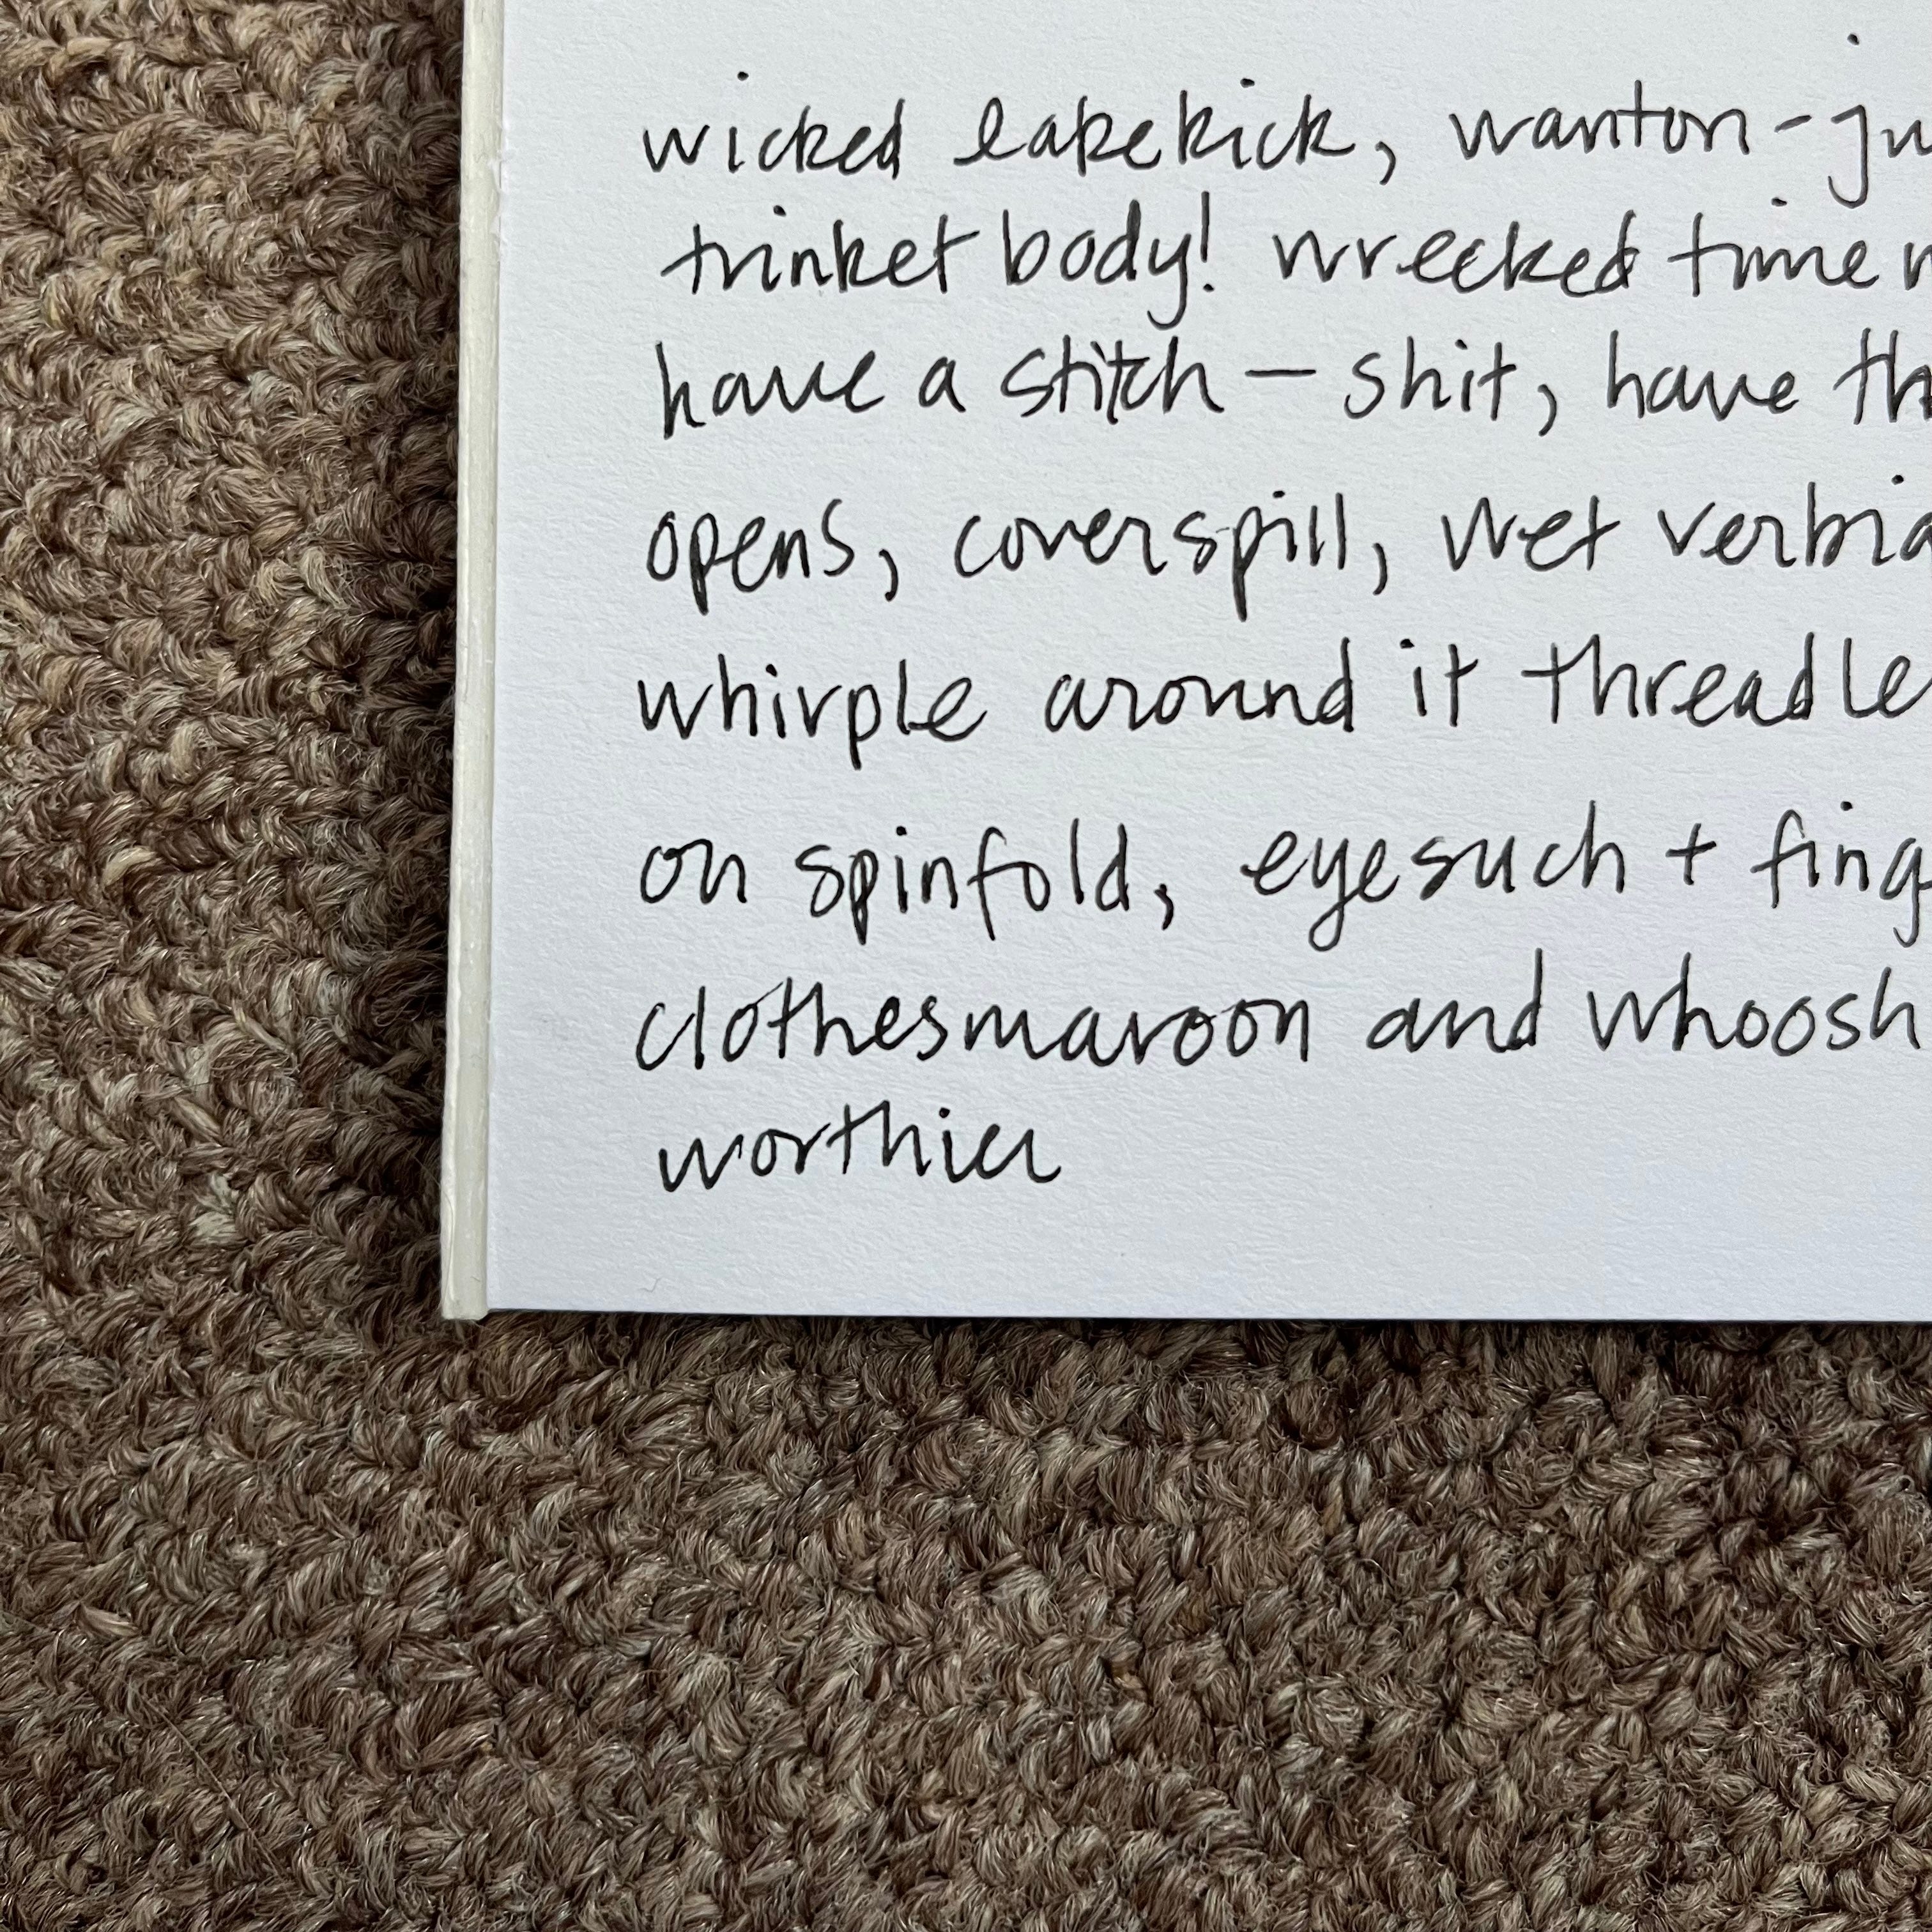 wicked lakekick, wanton-ju
trinket body! wrecked time
have a stitch — shit, have th
opens, coverspill, wet verbia
whirple around it threadle
on spinfold, eyesuch + fing
clothesmaroon and whoosh
worthier